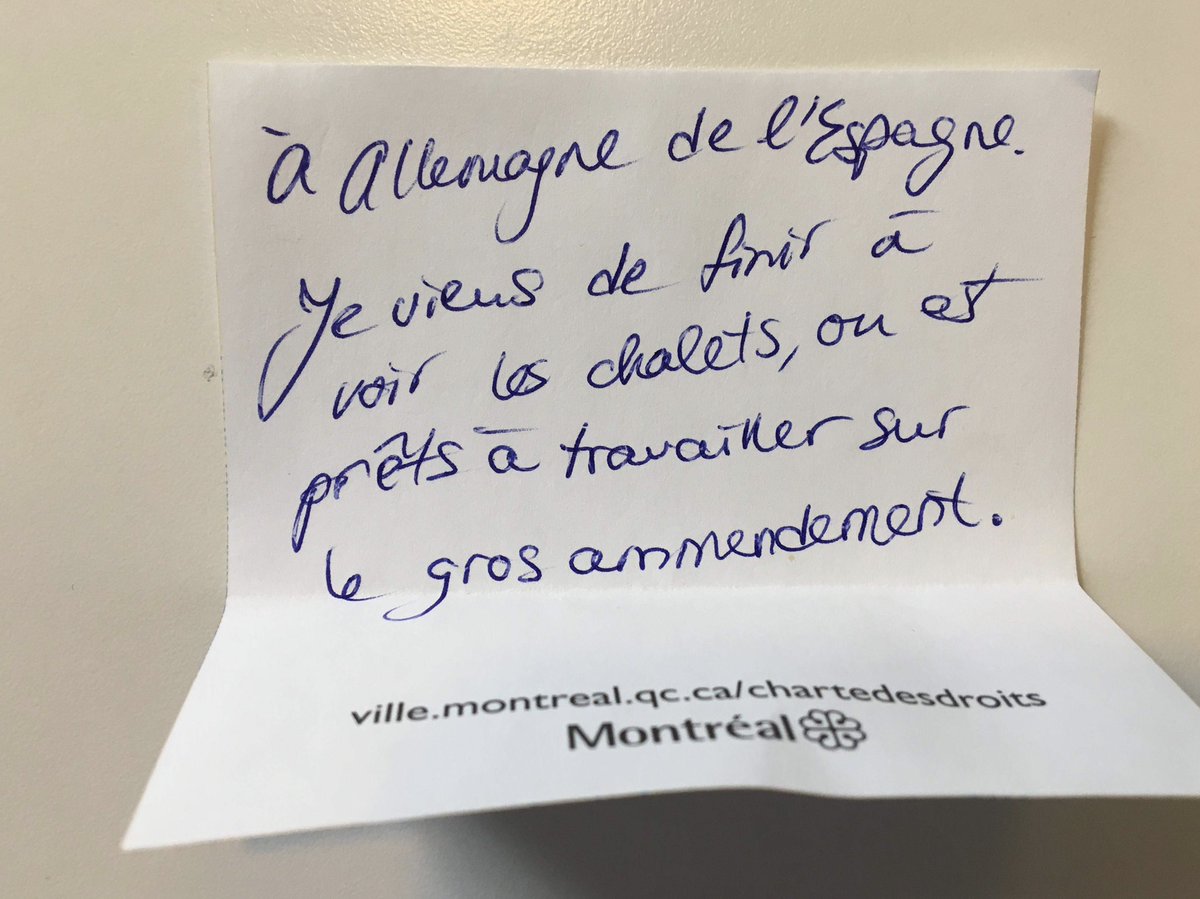 à Allemagne de l'Espagne.
Je viens de finir à
voir les chalets, ou est
prêts à travailler sur
le gros ammendement.
ville.montreal.qc.ca/chartedesdroits
Montréal